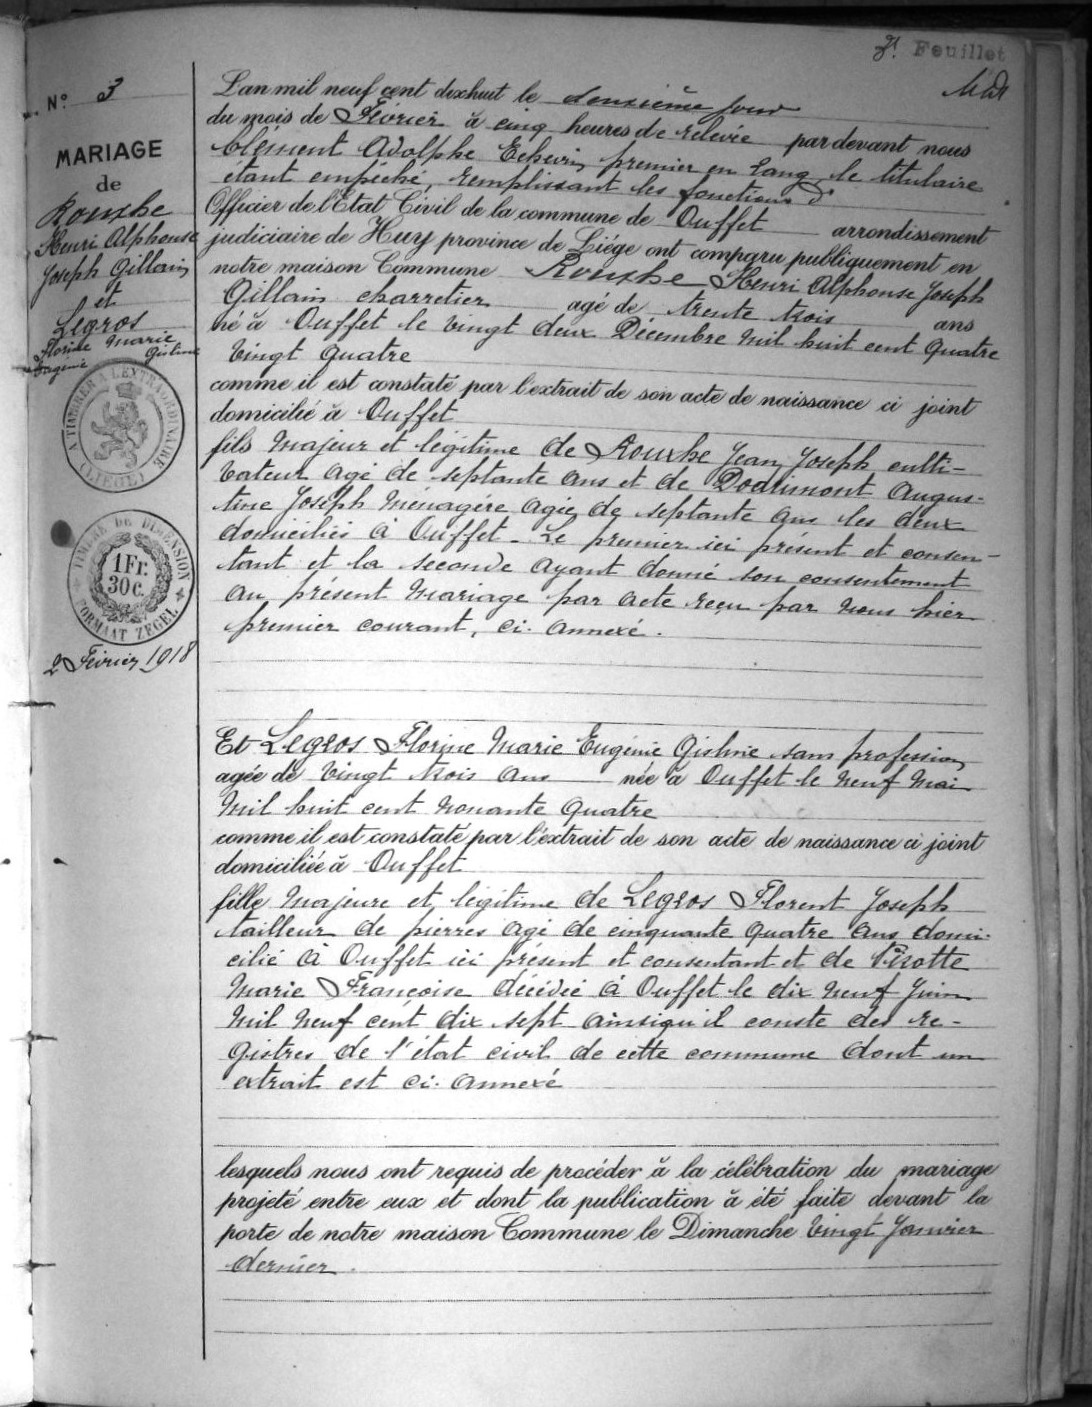 3. Feuillet
N° 3
MARIAGE
de
Rouxhe
Henri Alphonse
Joseph Gillain
et
Legros
Florine Marie
Eugénie Gisline
A TIMBRER A L'EXTRAORDINAIRE
(LIEGE)
TIMBRE DE DIMENSION
1 Fr.
30 c.
FORMAAT ZEGEL
2 Février 1918
L'an mil neuf cent dix huit le deuxième jour
du mois de Février à cinq heures de relevée par devant nous
Clément Adolphe Echevin, premier en rang, le titulaire
étant empêché, remplissant les fonctions d'
Officier de l'Etat Civil de la commune de Ouffet arrondissement
judiciaire de Huy province de Liége ont comparu publiquement en
notre maison Commune Rouxhe Henri Alphonse Joseph
Gillain charretier agé de trente trois ans
né à Ouffet le vingt deux Décembre mil huit cent quatre
vingt quatre
comme il est constaté par l'extrait de son acte de naissance ci joint
domicilié à Ouffet
fils majeur et légitime de Rouxhe Jean Joseph culti-
vateur agé de septante ans et de Dodrimont Augus-
tine Joseph ménagère agée de septante ans les deux
domiciliés à Ouffet - Le premier ici présent et consen-
tant et la seconde ayant donné son consentement
au présent mariage par acte reçu par nous hier
premier courant, ci-annexé.
Et Legros Florine Marie Eugénie Gisline sans profession
agée de vingt trois ans née à Ouffet le neuf mai
mil huit cent nonante quatre
comme il est constaté par l'extrait de son acte de naissance ci joint
domiciliée à Ouffet
fille majeure et légitime de Legros Florent Joseph
tailleur de pierres agé de cinquante quatre ans domi-
cilié à Ouffet ici présent et consentant et de Pirotte
Marie Françoise décédée à Ouffet le dix neuf Juin
mil neuf cent dix sept ainsi qu'il conste des re-
gistres de l'état civil de cette commune dont un
extrait est ci-annexé
lesquels nous ont requis de procéder à la célébration du mariage
projeté entre eux et dont la publication à été faite devant la
porte de notre maison Commune le Dimanche vingt Janvier
dernier.